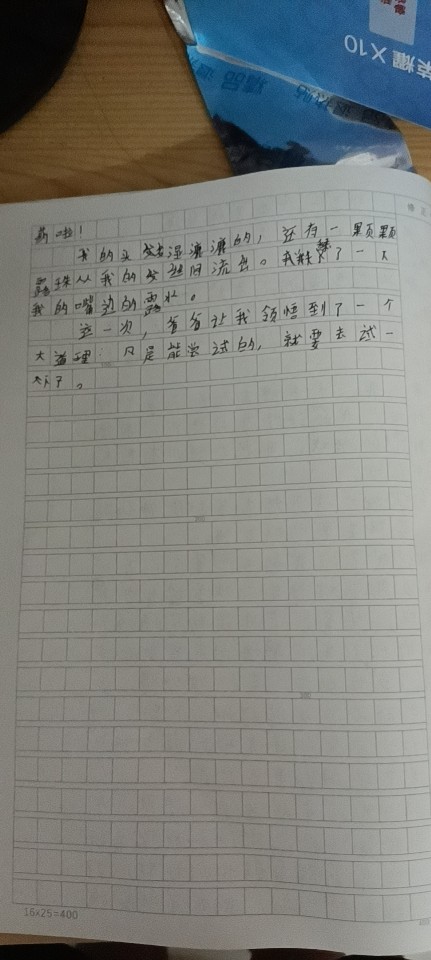 荣耀X10
精品
药啦！
我的头发湿漉漉的，还有一颗颗
露珠从我的发丝间流出。我舔了一下
我的嘴边的露水。
这一次，爷爷让我领悟到了一个
大道理：凡是能尝试的，就要去试一
下。
16x25=400